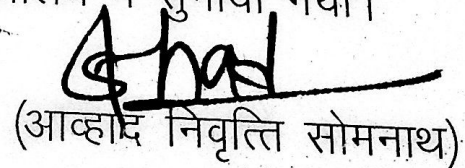 सुनाया गया।
(आव्हाद निवृत्ति सोमनाथ)